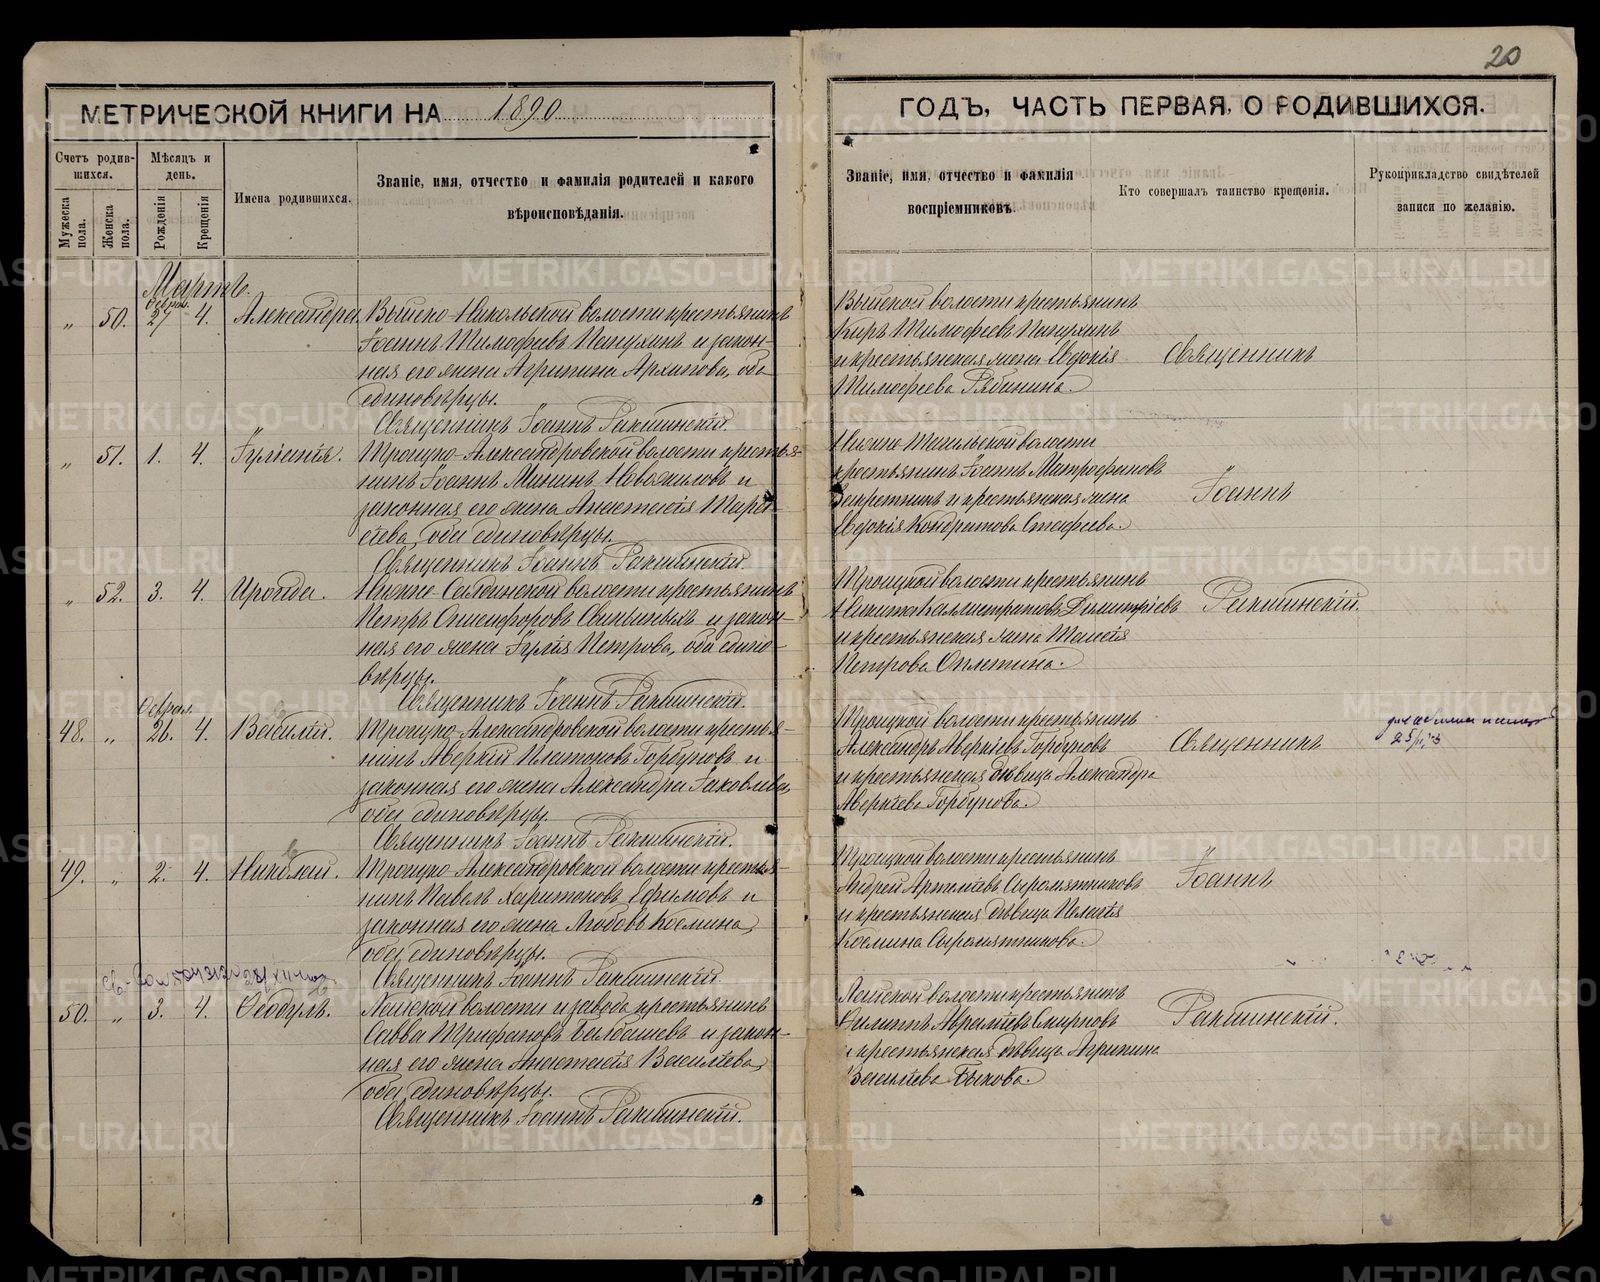 20
МЕТРИЧЕСКОЙ КНИГИ НА 1890
ГОДЪ, ЧАСТЬ ПЕРВАЯ, О РОДИВШИХСЯ.
Счетъ родив-
шихся.
Мужеска
пола.
Женска
пола.
Мѣсяцъ и
день.
Рожденія
Крещенія
Имена родившихся.
Званіе, имя, отчество и фамилія родителей и какого
вѣроисповѣданія.
Званіе, имя, отчество и фамилія
воспріемниковъ.
Кто совершалъ таинство крещенія.
Рукоприкладство свидѣтелей
записи по желанію.
Мартъ.
Феврал.
„ 50. 27 4. Александра. Выйско-Никольской волости крестьянинъ
Іоаннъ Тимофеевъ Папухинъ и закон-
ная его жена Агрипина Архипова, оба
единовѣрцы.
Священникъ Іоаннъ
Выйской волости крестьянинъ
Киръ Тимофеевъ Папухинъ
и крестьянская жена Евдокія
Тимофеева Рябинина.
Священникъ
„ 51. 1. 4. Іуліанія. Троицко-Александровской волости крестья-
нинъ Іоаннъ Мининъ Новожиловъ и
законная его жена Анастасія
оба единовѣрцы.
Священникъ Іоаннъ
Нижне-Тагильской волости
крестьянинъ Іоаннъ Митрофановъ
и крестьянская жена
Евдокія Кондратова
Іоаннъ
„ 52. 3. 4. Ираида. Нижне-Салдинской волости крестьянинъ
Петръ Онисифоровъ и закон-
ная его жена Іулія Петрова, оба едино-
вѣрцы.
Священникъ Іоаннъ
Троицкой волости крестьянинъ
Никита Каллистратовъ Димитріевъ
и крестьянская жена Таисія
Петрова Оплетина.
Феврал.
48. „ 26. 4. Василій. Троицко-Александровской волости крестья-
нинъ Аверкій Платоновъ Горбуновъ и
законная его жена Александра Іаковлева,
оба единовѣрцы.
Священникъ Іоаннъ
Троицкой волости крестьянинъ
Александръ Аверкіевъ Горбуновъ
и крестьянская дѣвица Александра
Аверкіева Горбунова.
Священникъ
49. „ 2. 4. Николай. Троицко-Александровской волости крестья-
нинъ Павелъ Харитоновъ Ефимовъ и
законная его жена Любовь Космина,
оба единовѣрцы.
Священникъ Іоаннъ
Троицкой волости крестьянинъ
Андрей Артеміевъ Сыромятниковъ
и крестьянская дѣвица Пелагія
Космина Сыромятникова.
Іоаннъ
50. „ 3. 4. Ѳеодулъ. Лайской волости и завода крестьянинъ
Савва Трифановъ и закон-
ная его жена Анастасія Василіева,
оба единовѣрцы.
Священникъ Іоаннъ
Лайской волости крестьянинъ
Филиппъ Смирновъ
и крестьянская дѣвица Агрипина
Василіева Быкова.
METRIKI.GASO-URAL.RU